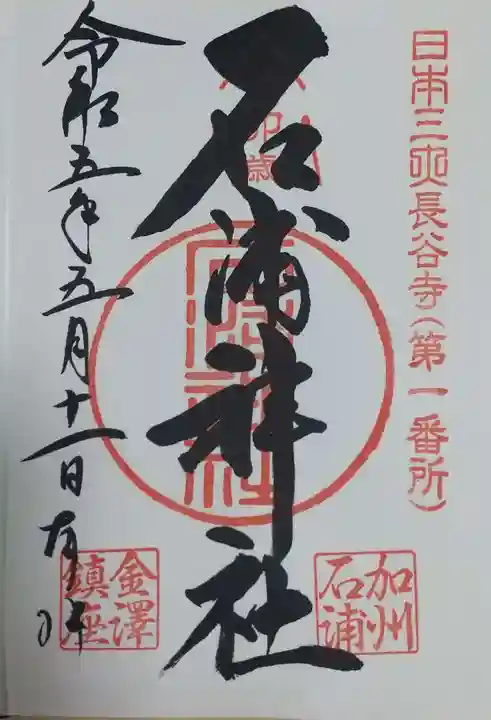 日本三大長谷寺(第一番所)
卯歳
石浦神社
石浦神社
加州
石浦
金澤
鎮座
令和五年五月十一日